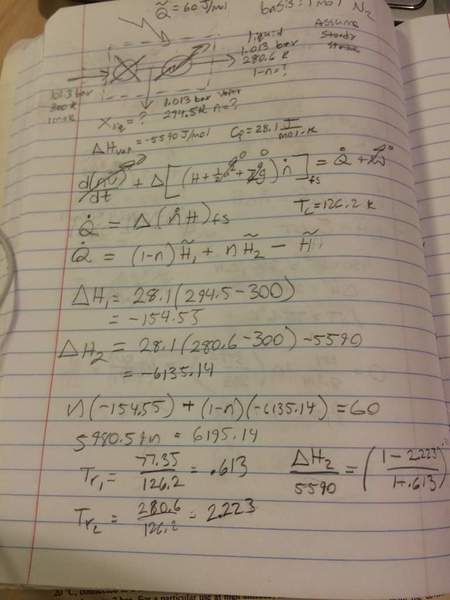 Q̃ = 60 J/mol
basis: 1 mol N2
Assume
Steady
State
liquid
1.013 bar
280.6 K
1-n=?
300 K
1 mol
1.013 bar vapor
294.5K n=?
Xliq = ?
ΔHvap = -5590 J/mol
Cp = 28.1 J/mol·K
d(nU)/dt + Δ[(H + ½u² + zg)ṅ]fs = Q̇ + Ẇ
Tc = 126.2 K
Q̇ = Δ(ṅH)fs
Q̇ = (1-n)H̃1 + nH̃2 - H̃1
ΔH1 = 28.1(294.5-300)
= -154.53
ΔH2 = 28.1(280.6-300) -5590
= -6135.14
n(-154.55) + (1-n)(-6135.14) = 60
5980.59n = 6195.14
Tr1 = 77.35/126.2 = .613
ΔH2/5590 = (1-2.223/1-.613)
Tr2 = 280.6/126.2 = 2.223